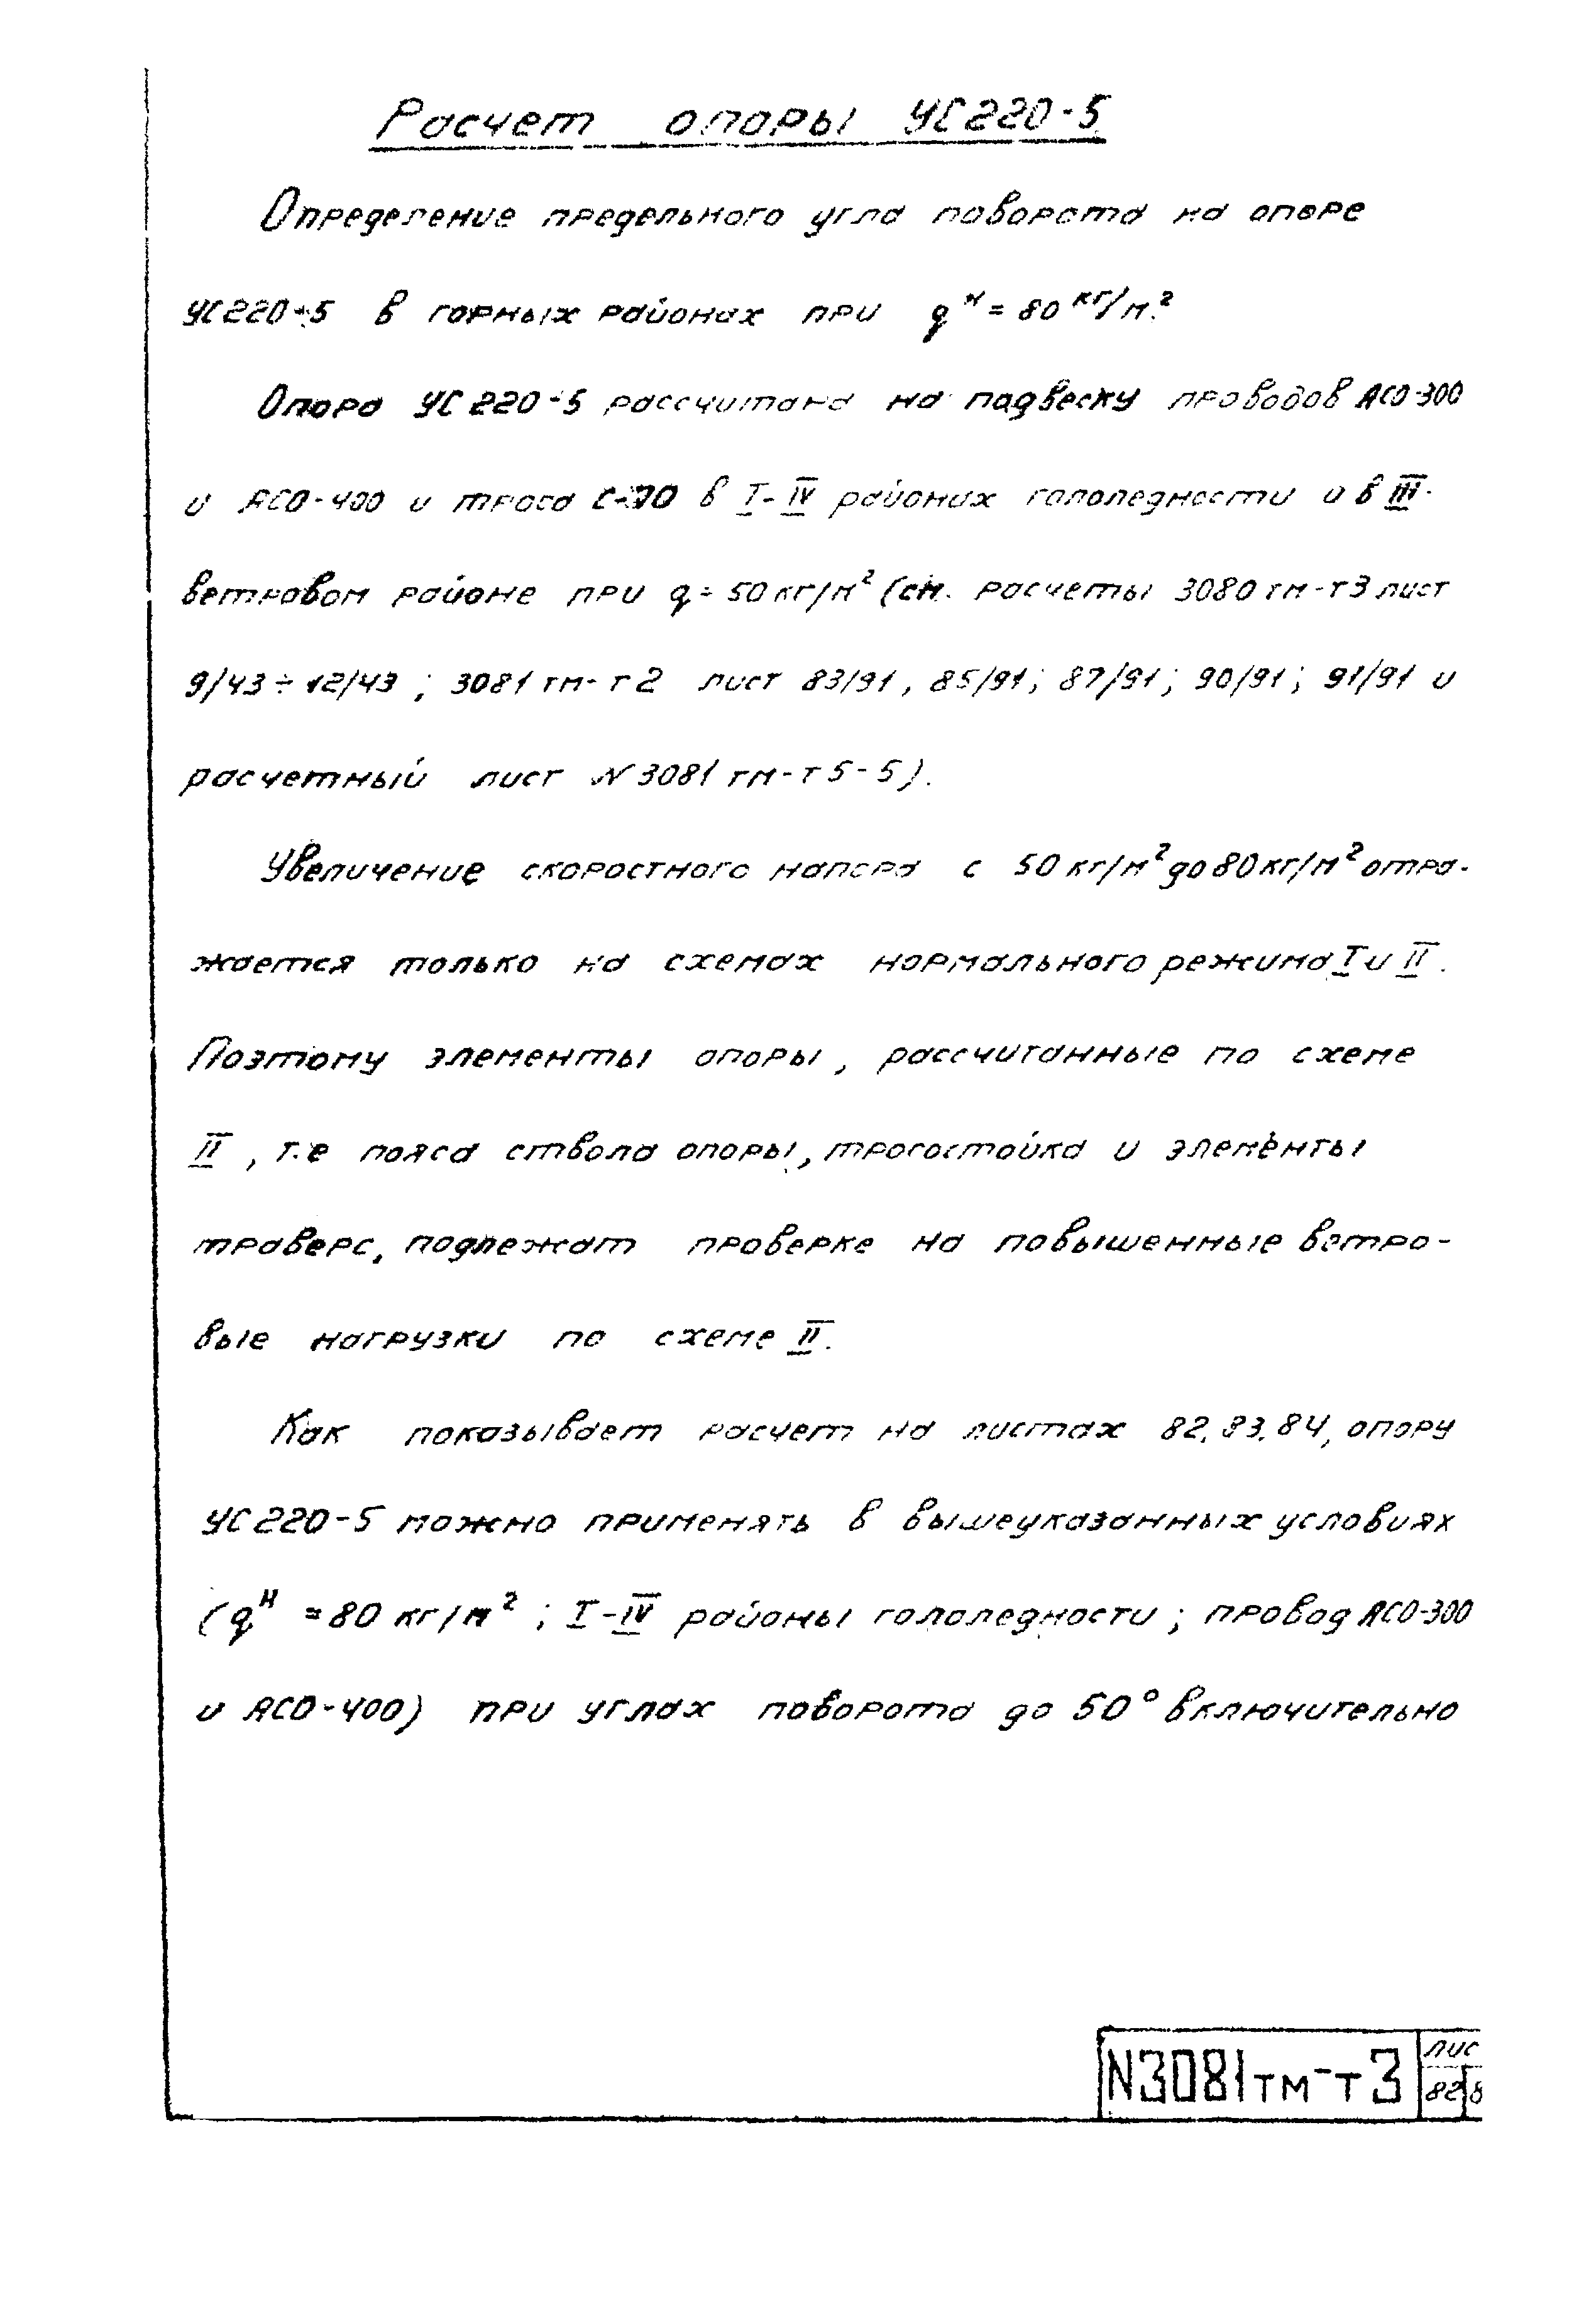 Расчет опоры УС220-5
Определение предельного угла поворота на опоре
УС220-5 в горных районах при qᴴ = 80 кг/м²
Опора УС220-5 рассчитана на подвеску проводов АСО-300
и АСО-400 и троса С-70 в I-IV районах гололедности и в III
ветровом районе при q = 50 кг/м² (см. расчеты 3080тм-т3 лист
9/43 ÷ 12/43 ; 3081тм-т2 лист 83/91, 85/91; 87/91; 90/91; 91/91 и
расчетный лист N3081тм-т5-5).
Увеличение скоростного напора с 50 кг/м² до 80 кг/м² отра-
жается только на схемах нормального режима I и II.
Поэтому элементы опоры, рассчитанные по схеме
II, т.е пояса ствола опоры, тросостойка и элементы
траверс, подлежат проверке на повышенные ветро-
вые нагрузки по схеме II.
Как показывает расчет на листах 82, 83, 84, опору
УС220-5 можно применять в вышеуказанных условиях
(qᴴ = 80 кг/м² ; I-IV районы гололедности ; провод АСО-300
и АСО-400) при углах поворота до 50° включительно
N3081тм-т3
лис
82